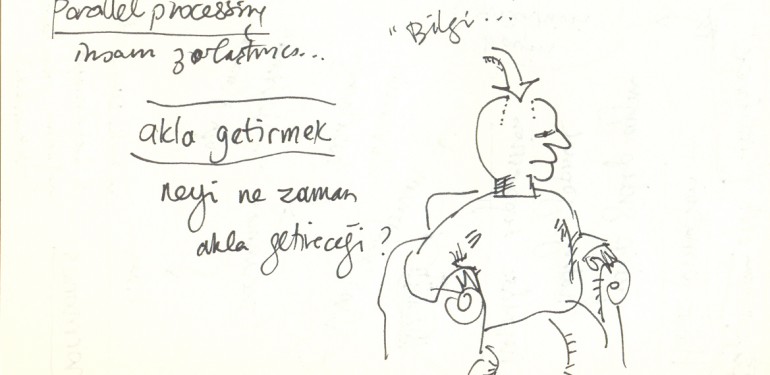 Parallel processing
insanı zorlaştırıcı...
akla getirmek
neyi ne zaman
akla getireceği?
"Bilgi...